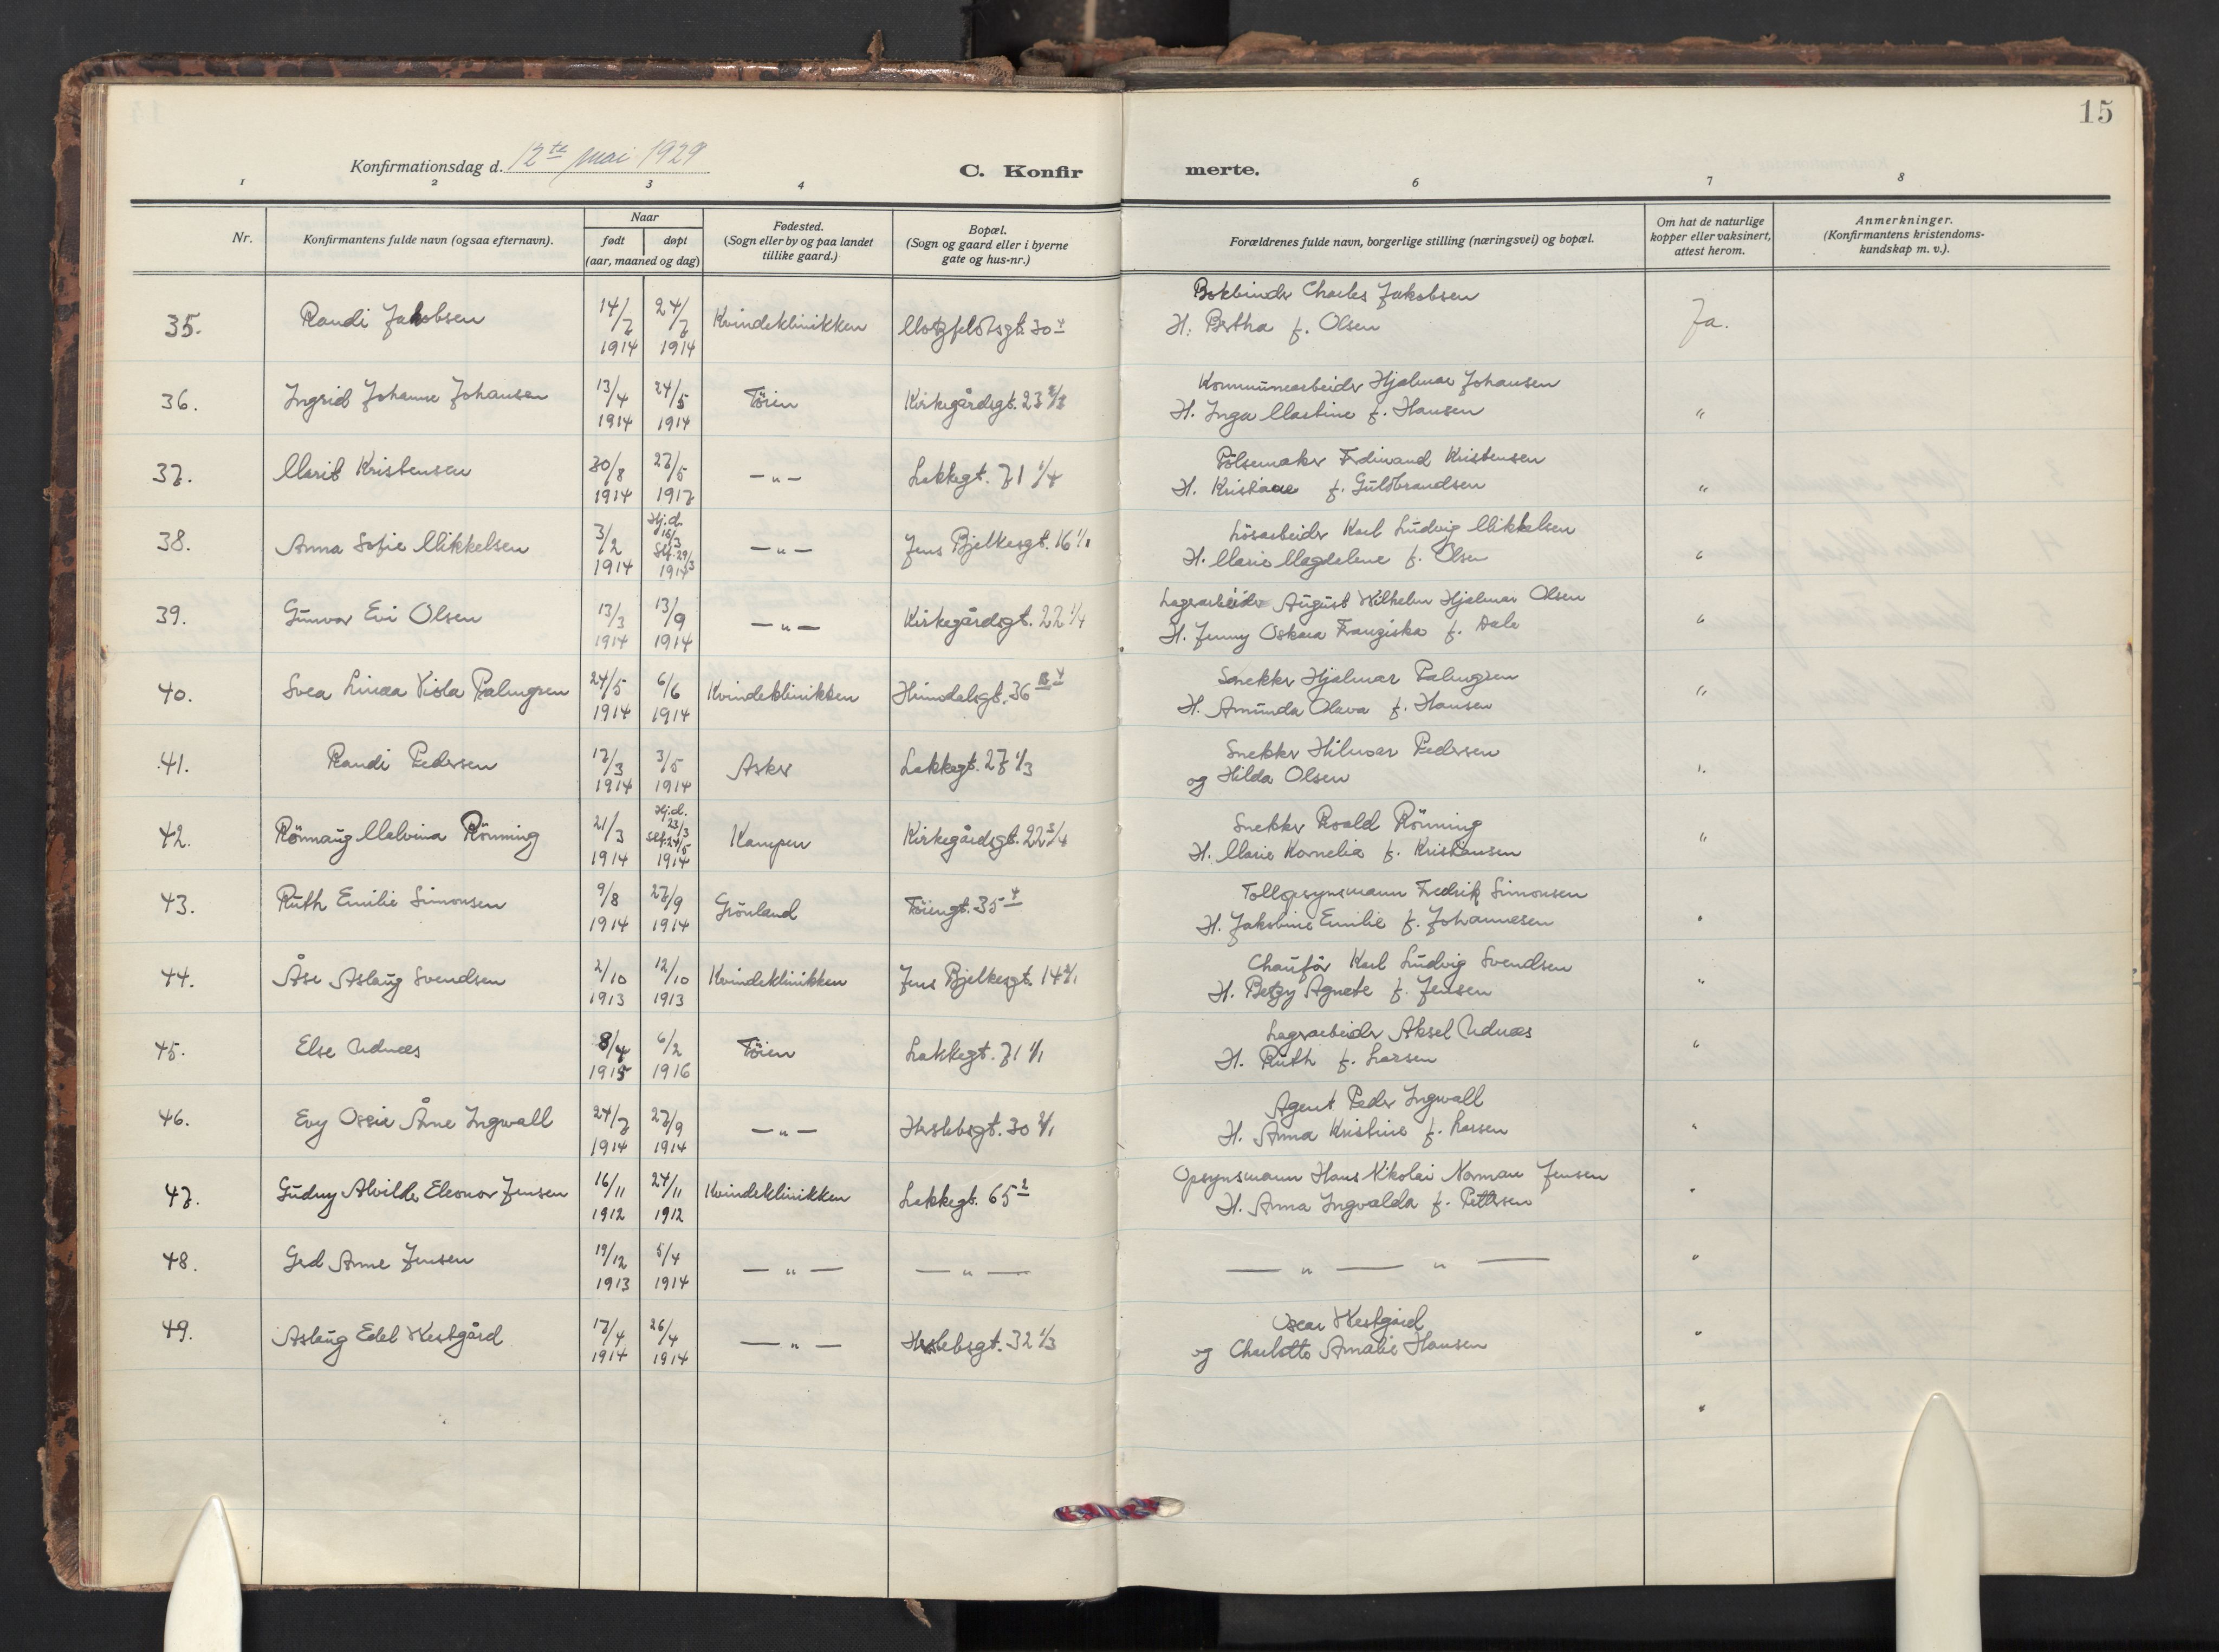 15
Konfirmationsdag d. 12te mai 1929
C. Konfir merte.
1 2 3 4 6 7 8
Nr.
Konfirmantens fulde navn (ogsaa efternavn).
Naar
født døpt
(aar, maaned og dag)
Fødested.
(Sogn eller by og paa landet
tillike gaard.)
Bopæl.
(Sogn og gaard eller i byerne
gate og hus-nr.)
Forældrenes fulde navn, borgerlige stilling (næringsvei) og bopæl.
Om hat de naturlige
kopper eller vaksinert,
attest herom.
Anmerkninger.
(Konfirmantens kristendoms-
kundskap m. v.).
35. Randi Jakobsen 14/7 1914 24/7 1914 Kvindeklinikken Motzfeldtsgt. 30 4
Bokbinder Charles Jakobsen
H. Bertha f. Olsen Ja.
36. Ingrid Johanne Johansen 13/4 1914 24/5 1914 Töien Kirkegårdsgt. 23
Kommunearbeider Hjalmar Johansen
H. Inga Martine f. Hansen "
37. Marit Kristensen 30/8 1914 27/5 1917 — " — Lakkegt. 71 1/4
Pölsemaker Ferdinand Kristensen
H. Kristiane f. Guldbrandsen "
38. Anna Sofie Mikkelsen 3/2 1914 Hj.d. 16/3 Stf. 29/3 1914 — " — Jens Bjelkesgt. 16 1/1
Lösarbeider Karl Ludvig Mikkelsen
H. Marie Magdalene f. Olsen "
39. Gunvor Evi Olsen 13/3 1914 13/9 1914 — " — Kirkegårdsgt. 22 1/4
Lagerarbeider August Wilhelm Hjalmar Olsen
H. Jenny Oskara Franziska f. Dale "
40. Svea Linea Viola Palmgren 24/5 1914 6/6 1914 Kvindeklinikken Heimdalsgt. 36 B 4
Snekker Hjalmar Palmgren
H. Amunda Olava f. Hansen "
41. Randi Pedersen 17/3 1914 3/5 1914 Asker Lakkegt. 27 1/3
Snekker Hilmar Pedersen
og Hilda Olsen "
42. Rönnaug Malvina Rönning 21/3 1914 Hj.d. 23/3 Stf. 24/5 1914 Kampen Kirkegårdsgt. 22 3/4
Snekker Roald Rönning
H. Marie Kornelia f. Kristiansen "
43. Ruth Emilie Simonsen 9/8 1914 27/9 1914 Grönland Töiengt. 35 4
Tollopsynsmann Fredrik Simonsen
H. Jakobine Emilie f. Johannesen "
44. Åse Aslaug Svendsen 2/10 1913 12/10 1913 Kvindeklinikken Jens Bjelkesgt. 14 2/1
Chaufför Karl Ludvig Svendsen
H. Betzy Agnete f. Jensen "
45. Else Udnæs 8/4 1915 6/2 1916 Töien Lakkegt. 71 1/1
Lagerarbeider Aksel Udnæs
H. Ruth f. Larsen "
46. Evy Ossie Åne Ingwall 24/7 1914 27/9 1914 — " — Herslebsgt. 30 2/1
Agent Peder Ingwall
H. Anna Kristine f. Larsen "
47. Gudny Alvilde Eleonor Jensen 16/11 1912 24/11 1912 Kvindeklinikken Lakkegt. 65 2
Opsynsmann Hans Nikolai Norman Jensen
H. Anna Ingvalda f. Pettersen "
48. Gerd Anne Jensen 19/12 1913 5/4 1914 — " — — " —
— " — " — "
49. Aslaug Edel Westgård 17/4 1914 26/4 1914 — " — Herslebsgt. 32 1/3
Oscar Westgård
og Charlotte Amalie Hansen "
"